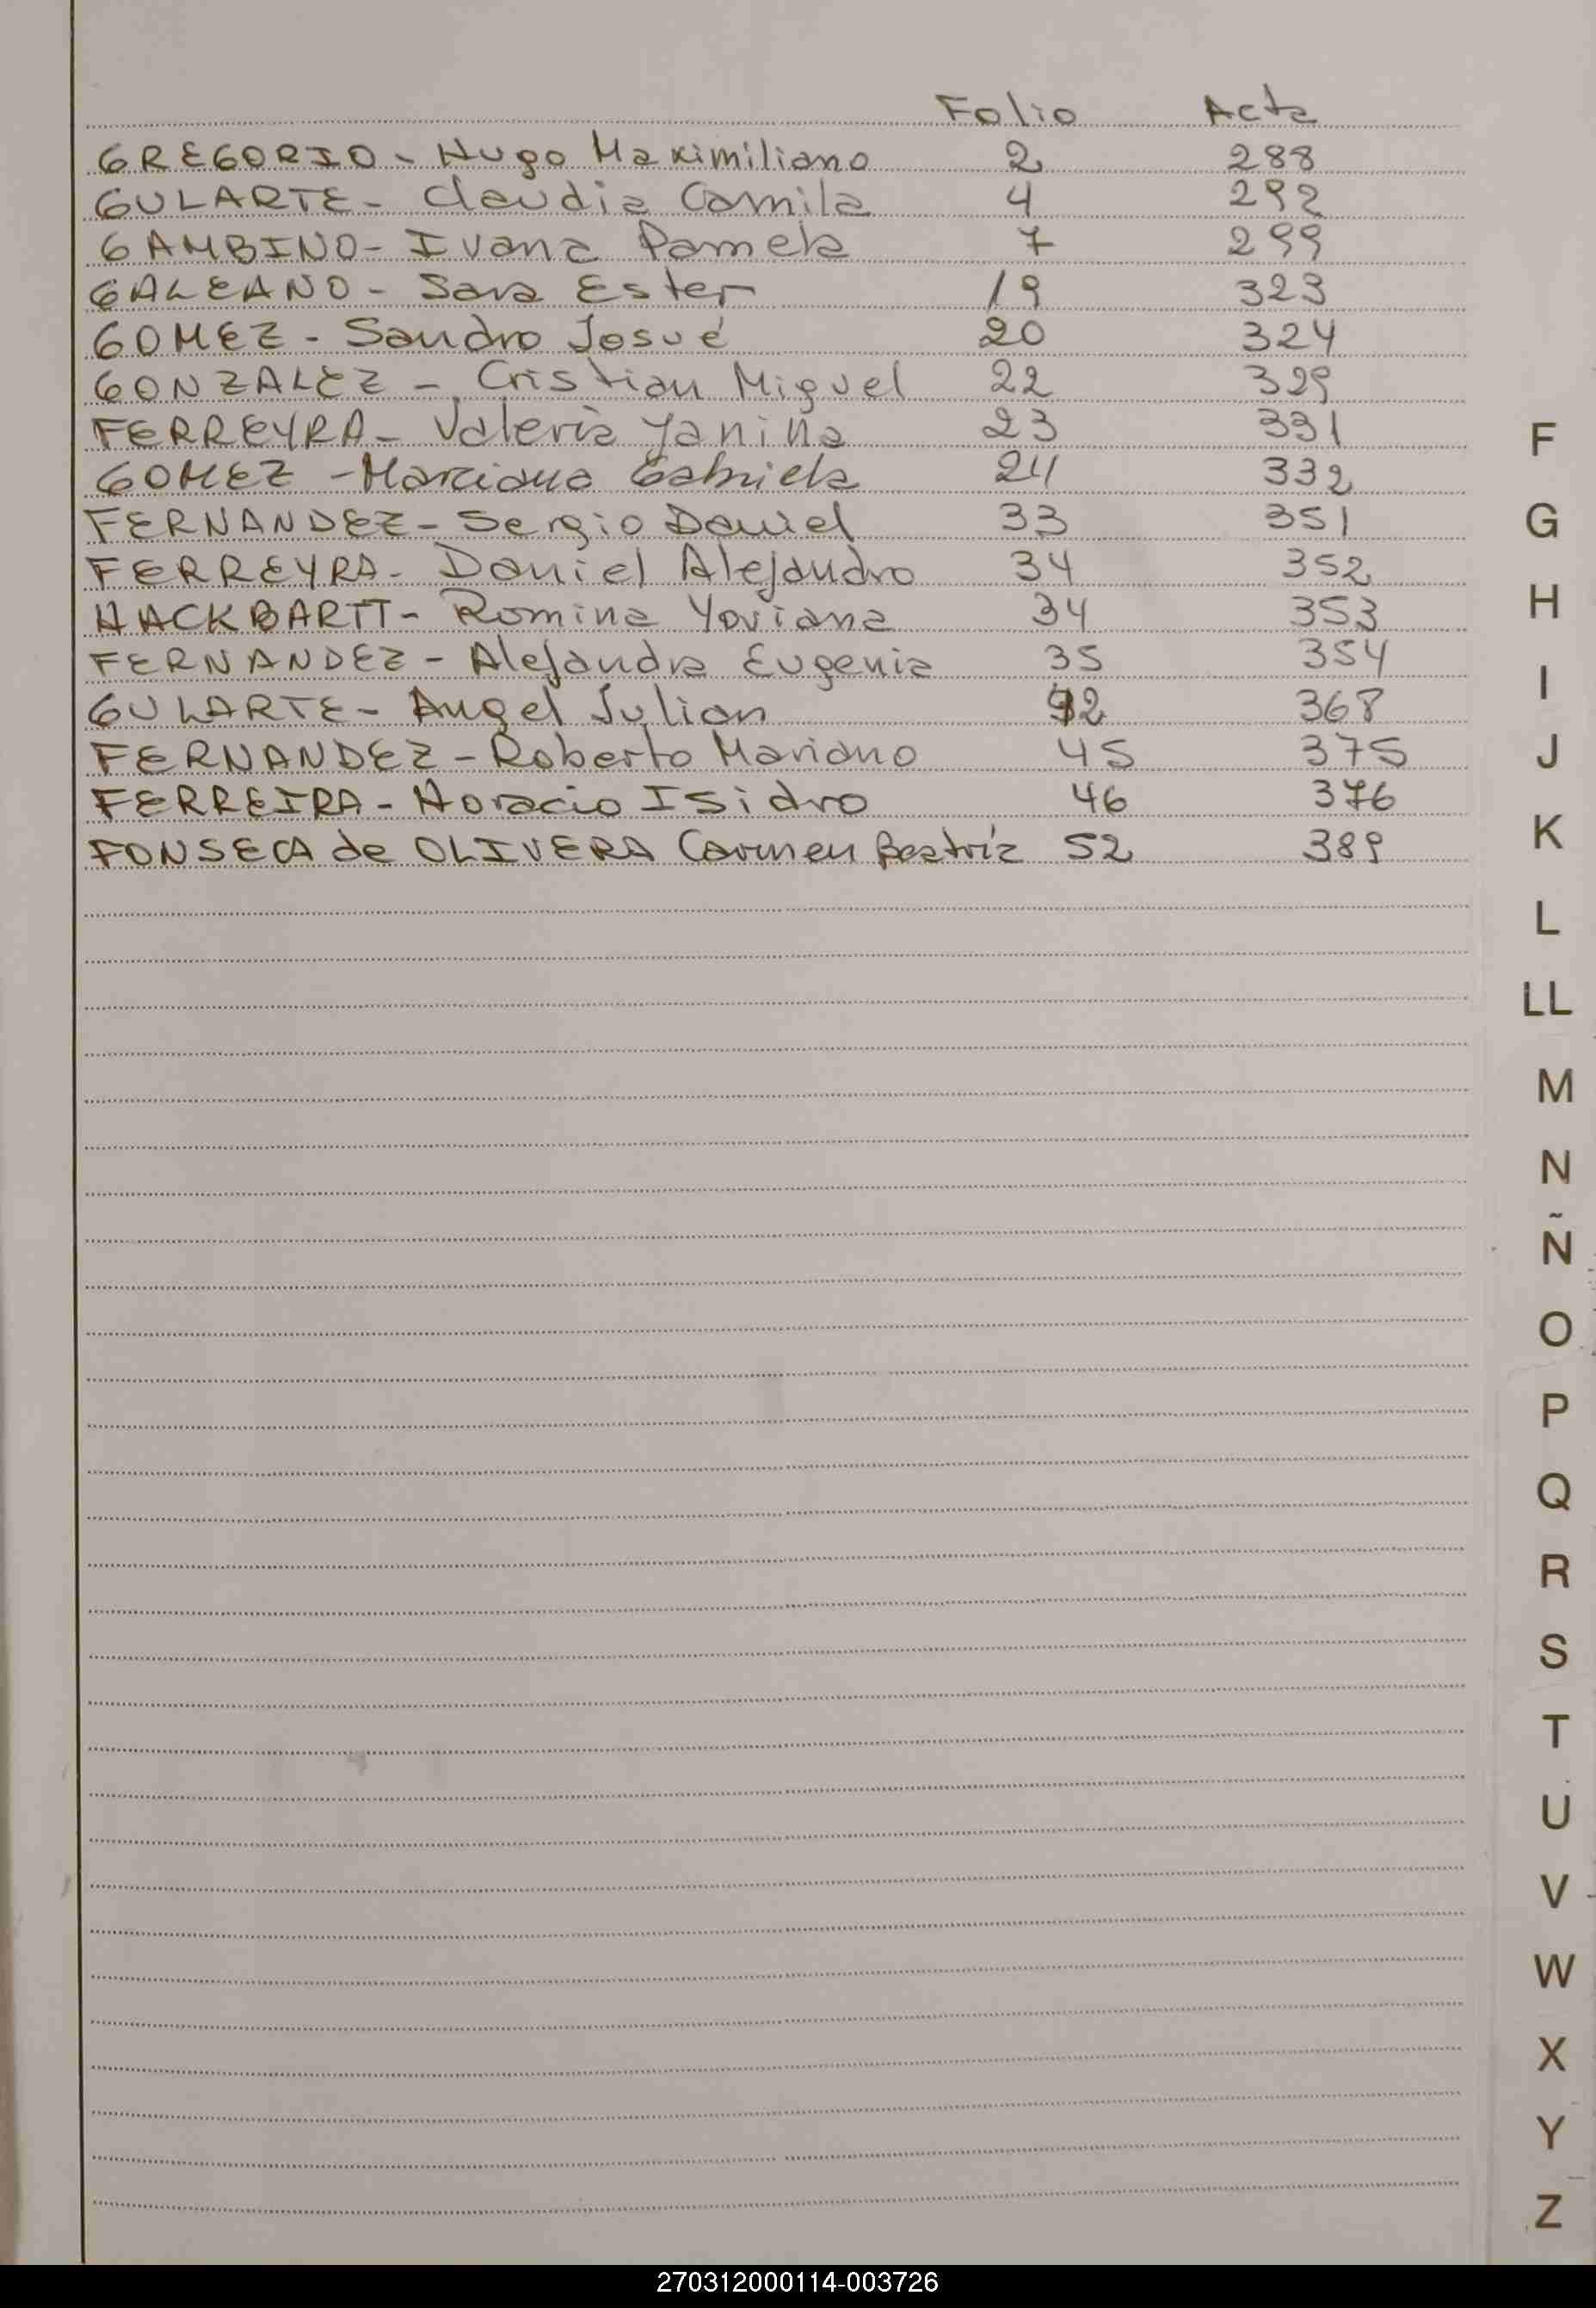 Folio Acta
GREGORIO - Hugo Maximiliano 2 288
GULARTE - Claudia Camila 4 292
GAMBINO - Ivana Pamela 7 299
GALEANO - Sara Ester 19 323
GOMEZ - Sandro Josué 20 324
GONZALEZ - Cristian Miguel 22 329
FERREYRA - Valeria Yanina 23 331
GOMEZ - Marciana Gabriela 24 332
FERNANDEZ - Sergio Daniel 33 351
FERREYRA - Daniel Alejandro 34 352
HACKBARTT - Romina Yoviana 34 353
FERNANDEZ - Alejandra Eugenia 35 354
GULARTE - Angel Julian 42 368
FERNANDEZ - Roberto Mariano 45 375
FERREIRA - Horacio Isidro 46 376
FONSECA de OLIVERA Carmen Beatríz 52 389
F
G
H
I
J
K
L
LL
M
N
Ñ
O
P
Q
R
S
T
U
V
W
X
Y
Z
270312000114-003726